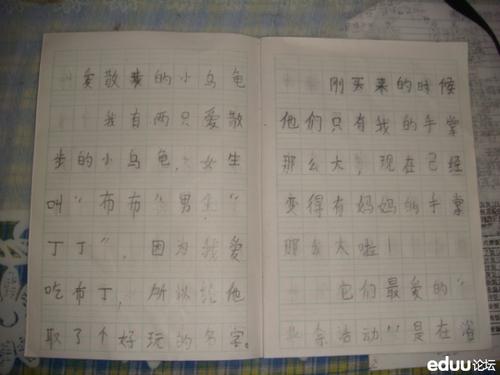 爱散步的小乌龟
我有两只爱散
步的小乌龟,女生
叫"布布"男生"
丁丁",因为我爱
吃布丁,所以给他
取了个好玩的名字。
刚买来的时候
他们只有我的手掌
那么大,现在已经
变得有妈妈的手掌
那么大啦!
它们最爱的"
业余活动"是在浴
eduu论坛